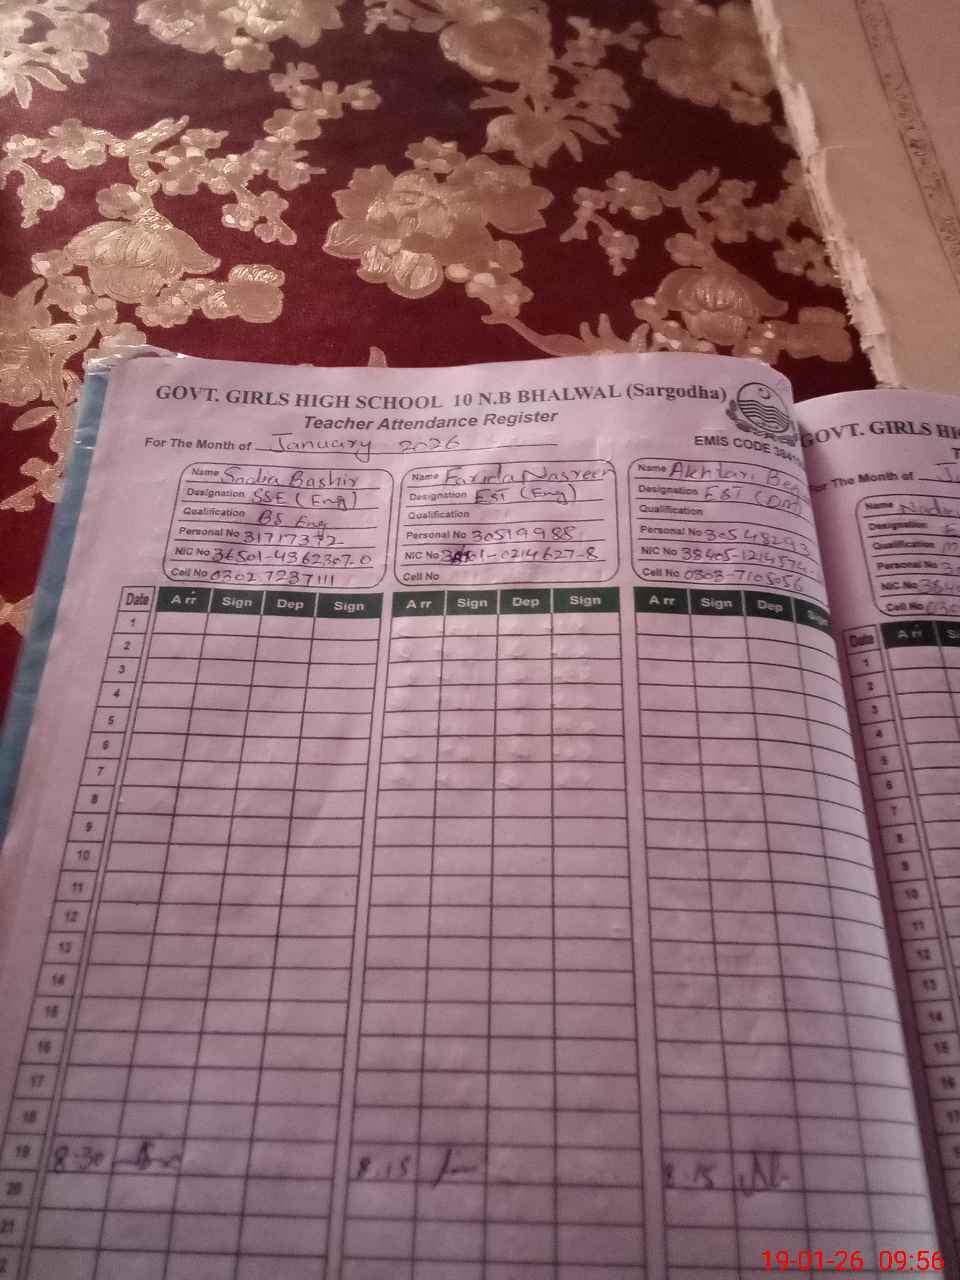 GOVT. GIRLS HIGH SCHOOL 10 N.B BHALWAL (Sargodha)
Teacher Attendance Register
For The Month of January 2026
EMIS CODE
Name Sadia Bashir
Designation SSE (Eng)
Qualification BS Eng
Personal No
NIC No 36501-4362307-0
Cell No 0302 7237111
Name Farida Nasreen
Designation EST (Eng)
Qualification
Personal No 30519988
NIC No
Cell No
Name Akhtari
Designation EST
Qualification
Personal No
NIC No
Cell No 0303-7105056
Date Arr Sign Dep Sign Arr Sign Dep Sign Arr Sign Dep Sign
1
2
3
4
5
6
7
8
9
10
11
12
13
14
15
16
17
18
19 8-30 8.15 8.15
20
21
GOVT. GIRLS
For The Month of
Name
Designation
Qualification
Personal No
NIC No
Cell No
Date Arr
1
2
3
4
5
6
7
8
9
10
11
12
13
14
15
16
17
19-01-26 09:56